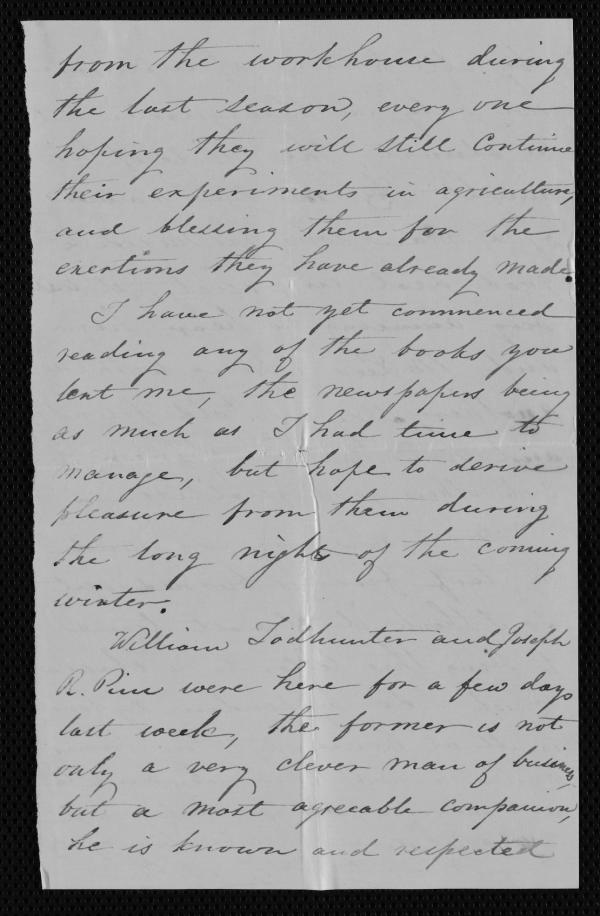 from the workhouse during
the last season, every one
hoping they will still Continue
their experiments in agriculture,
and blessing them for the
exertions they have already made.
I have not yet commenced
reading any of the books you
lent me, the newspapers being
as much as I had time to
manage, but hope to derive
pleasure from them during
the long nights of the coming
winter.
William Todhunter and Joseph
R. Pim were here for a few days
last week, the former is not
only a very clever man of business,
but a most agreeable companion,
he is known and respected